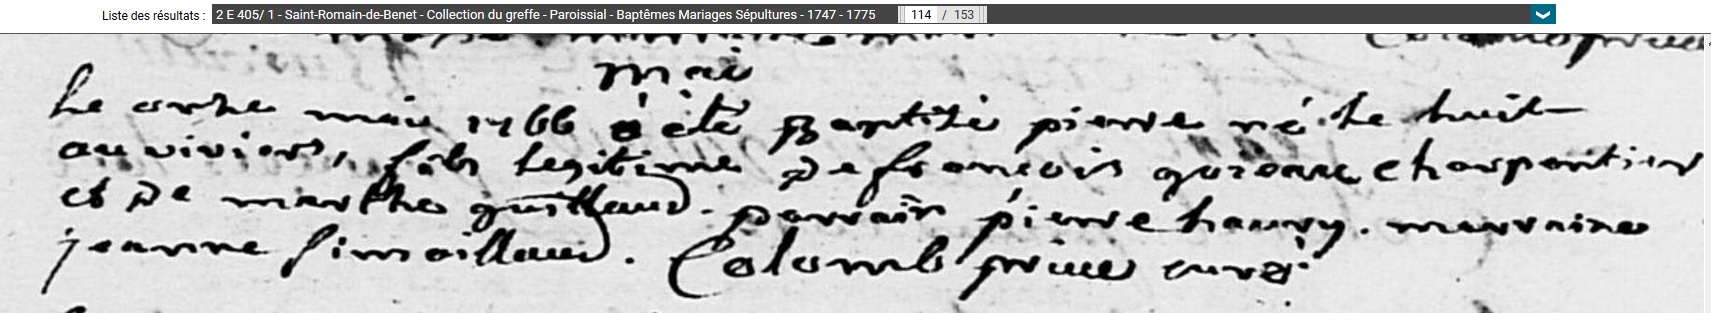 Liste des résultats : 2 E 405/ 1 - Saint-Romain-de-Benet - Collection du greffe - Paroissial - Baptêmes Mariages Sépultures - 1747 - 1775 114 / 153
mai
Le onze mai 1766 a été baptisé pierre né le huit
au viviers, fils legitime de francois charpentier
et de marthe guillaud. parrain pierre haury. marraine
jeanne simaillaud. Colomb prieur curé